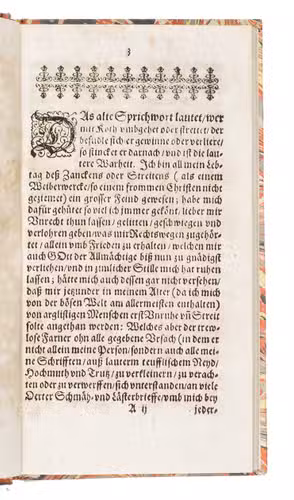 3
DAs alte Sprichwort lautet/wer
mit Koth vmbgehet oder streitet/der
besudle sich/er gewinne oder verliere/
so stincket er darnach/vnd ist die lau-
tere Warheit. Ich bin all mein Leb-
tag deß Zanckens oder Streitens (als einem
Weiberwercke/so einem frommen Christen nicht
geziemet) ein grosser Feind gewesen; habe mich
dafür gehütet so viel ich immer gekönt/lieber mir
Vnrecht thun lassen/gelitten/geschwiegen vnd
verlohren geben/was mir Rechtswegen zugehör-
tet/allein vmb Frieden zu erhalten/welchen mir
auch GOtt der Allmächtige biß nun zu gnädigst
verliehen/vnd in zimlicher Stille mich hat ruhen
lassen; hätte mich auch dessen gar nicht versehen/
daß mir jezunder in meinem Alter (da ich mich
von der bösen Welt am allermeisten enthalten)
von arglistigen Menschen erst Vnruhe vñ Streit
solte angethan werden: Welches aber der trew-
lose Farner ohn alle gegebene Vrsach (in dem er
nicht allein meine Person/sondern auch alle mei-
ne Schrifften/auß lauterm teufflischem Neyd/
Hochmuth vnd Trutz/zu verkleinern/zu verach-
ten oder zu verwerffen/sich vnterstanden/an viele
Oerter Schmäh- vnd Lästerbrieffe/vmb mich bey
A ij jeder-